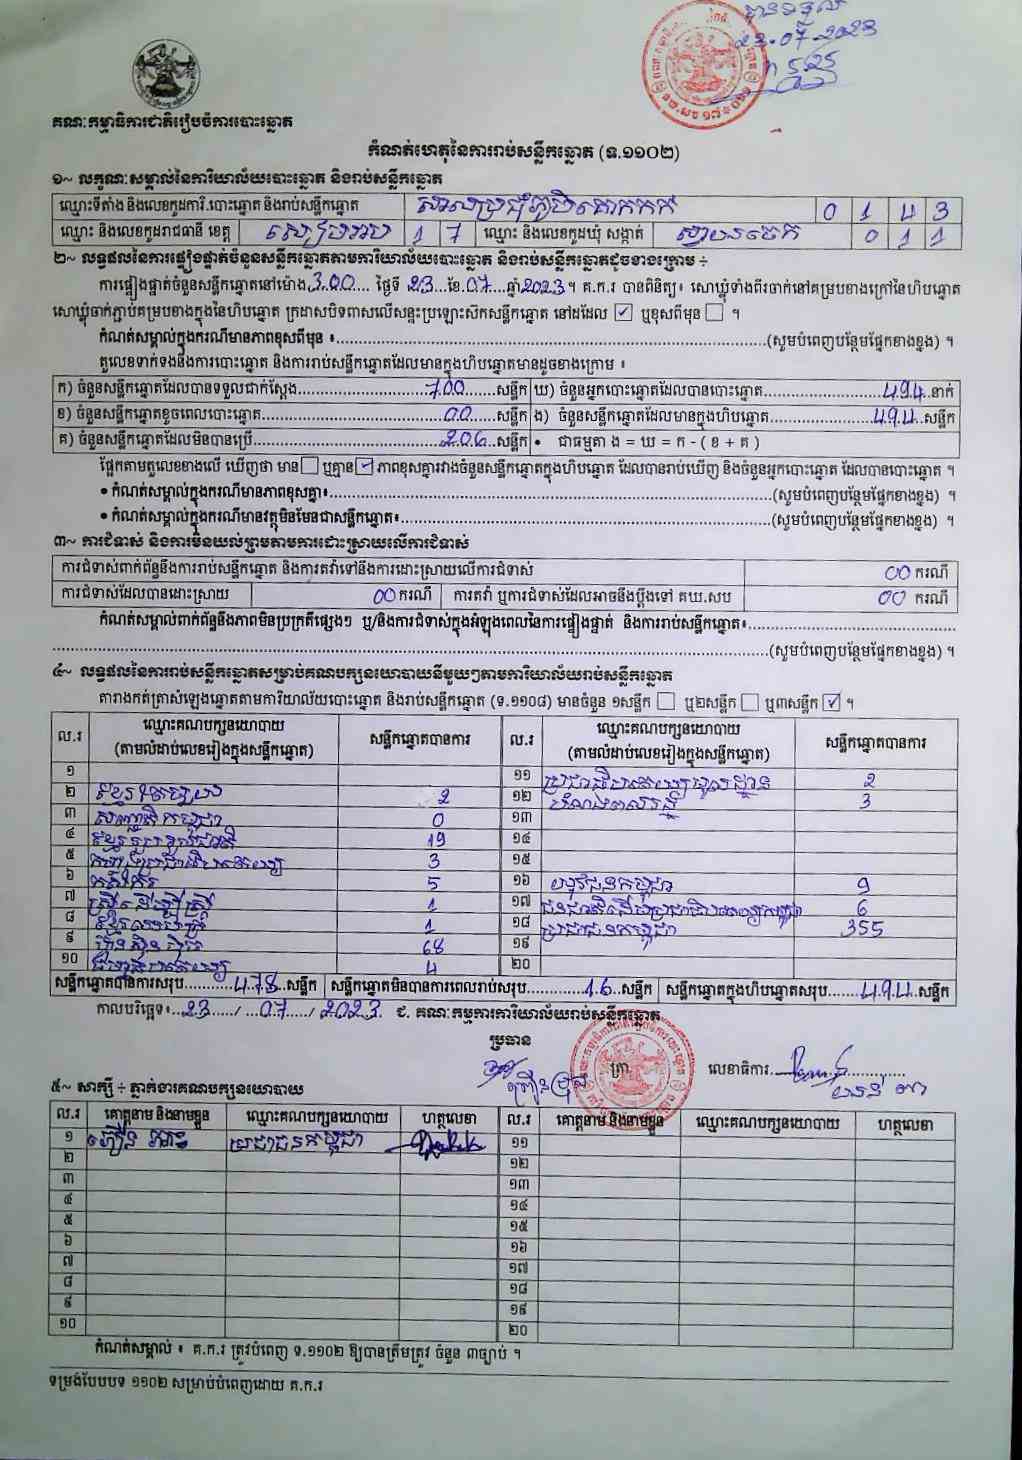 23.07.2023
គណៈកម្មាធិការជាតិរៀបចំការបោះឆ្នោត
កំណត់ហេតុនៃការរាប់សន្លឹកឆ្នោត (ទ.១១០២)
១~ លក្ខណៈសម្គាល់នៃការិយាល័យបោះឆ្នោត និងរាប់សន្លឹកឆ្នោត
ឈ្មោះទីតាំង និងលេខកូដការិ.បោះឆ្នោត និងរាប់សន្លឹកឆ្នោត សាលាប្រជុំភូមិគោកកក់ 0 1 4 3
ឈ្មោះ និងលេខកូដរាជធានី ខេត្ត សៀមរាប 1 7 ឈ្មោះ និងលេខកូដឃុំ សង្កាត់ 0 1 1
២~ លទ្ធផលនៃការផ្ទៀងផ្ទាត់ចំនួនសន្លឹកឆ្នោតតាមការិយាល័យបោះឆ្នោត និងរាប់សន្លឹកឆ្នោតដូចខាងក្រោម ÷
ការផ្ទៀងផ្ទាត់ចំនួនសន្លឹកឆ្នោតនៅម៉ោង 3.00 ថ្ងៃទី 23 ខែ 07 ឆ្នាំ 2023 ។ គ.ក.រ បានពិនិត្យ៖ សោឃ្លុំទាំងពីរចាក់នៅគម្របខាងក្រៅនៃហិបឆ្នោត
សោឃ្លុំចាក់ភ្ជាប់គម្របខាងក្នុងនៃហិបឆ្នោត ក្រដាសបិទពាសលើសន្ទះប្រឡោះស៊កសន្លឹកឆ្នោត នៅដដែល ☑ ឬខុសពីមុន ☐ ។
កំណត់សម្គាល់ក្នុងករណីមានភាពខុសពីមុន ៖ (សូមបំពេញបន្ថែមផ្នែកខាងខ្នង) ។
តួលេខទាក់ទងនឹងការបោះឆ្នោត និងការរាប់សន្លឹកឆ្នោតដែលមានក្នុងហិបឆ្នោតមានដូចខាងក្រោម ៖
ក) ចំនួនសន្លឹកឆ្នោតដែលបានទទួលជាក់ស្តែង 700 សន្លឹក ឃ) ចំនួនអ្នកបោះឆ្នោតដែលបានបោះឆ្នោត 494 នាក់
ខ) ចំនួនសន្លឹកឆ្នោតខូចពេលបោះឆ្នោត 00 សន្លឹក ង) ចំនួនសន្លឹកឆ្នោតដែលមានក្នុងហិបឆ្នោត 494 សន្លឹក
គ) ចំនួនសន្លឹកឆ្នោតដែលមិនបានប្រើ 206 សន្លឹក • ជាធម្មតា ង = ឃ = ក - ( ខ + គ )
ផ្អែកតាមតួលេខខាងលើ ឃើញថា មាន ☐ ឬគ្មាន ☑ ភាពខុសគ្នារវាងចំនួនសន្លឹកឆ្នោតក្នុងហិបឆ្នោត ដែលបានរាប់ឃើញ និងចំនួនអ្នកបោះឆ្នោត ដែលបានបោះឆ្នោត ។
• កំណត់សម្គាល់ក្នុងករណីមានភាពខុសគ្នា៖ (សូមបំពេញបន្ថែមផ្នែកខាងខ្នង) ។
• កំណត់សម្គាល់ក្នុងករណីមានវត្ថុមិនមែនជាសន្លឹកឆ្នោត៖ (សូមបំពេញបន្ថែមផ្នែកខាងខ្នង) ។
៣~ ការជំទាស់ និងការមិនយល់ព្រមតាមការដោះស្រាយលើការជំទាស់
ការជំទាស់ពាក់ព័ន្ធនឹងការរាប់សន្លឹកឆ្នោត និងការតវ៉ាទៅនឹងការដោះស្រាយលើការជំទាស់ 00 ករណី
ការជំទាស់ដែលបានដោះស្រាយ 00 ករណី ការតវ៉ា ឬការជំទាស់ដែលអាចនឹងប្តឹងទៅ គឃ.សប 00 ករណី
កំណត់សម្គាល់ពាក់ព័ន្ធនឹងភាពមិនប្រក្រតីផ្សេងៗ ឬ/និងការជំទាស់ក្នុងអំឡុងពេលនៃការផ្ទៀងផ្ទាត់ និងការរាប់សន្លឹកឆ្នោត៖
(សូមបំពេញបន្ថែមផ្នែកខាងខ្នង) ។
៤~ លទ្ធផលនៃការរាប់សន្លឹកឆ្នោតសម្រាប់គណបក្សនយោបាយនីមួយៗតាមការិយាល័យរាប់សន្លឹកឆ្នោត
តារាងកត់ត្រាសំឡេងឆ្នោតតាមការិយាល័យបោះឆ្នោត និងរាប់សន្លឹកឆ្នោត (ទ.១១០៨) មានចំនួន ១សន្លឹក ☐ ឬ២សន្លឹក ☐ ឬ៣សន្លឹក ☑ ។
ល.រ ឈ្មោះគណបក្សនយោបាយ (តាមលំដាប់លេខរៀងក្នុងសន្លឹកឆ្នោត) សន្លឹកឆ្នោតបានការ ល.រ ឈ្មោះគណបក្សនយោបាយ (តាមលំដាប់លេខរៀងក្នុងសន្លឹកឆ្នោត) សន្លឹកឆ្នោតបានការ
១ ១១ ប្រជាធិបតេយ្យមូលដ្ឋាន 2
២ 2 ១២ 3
៣ សញ្ជាតិកម្ពុជា 0 ១៣
៤ ខ្មែររួបរួមជាតិ 19 ១៤
៥ 3 ១៥
៦ កសិករ 5 ១៦ យុវជនកម្ពុជា 9
៧ ស្រ្តីដើម្បីស្ត្រី 1 ១៧ 6
៨ 1 ១៨ ប្រជាជនកម្ពុជា 355
៩ ហ្វ៊ុនស៊ិនប៉ិច 68 ១៩
១០ 4 ២០
សន្លឹកឆ្នោតបានការសរុប 478 សន្លឹក សន្លឹកឆ្នោតមិនបានការពេលរាប់សរុប 16 សន្លឹក សន្លឹកឆ្នោតក្នុងហិបឆ្នោតសរុប 494 សន្លឹក
កាលបរិច្ឆេទ៖ 23 / 07 / 2023 ជ. គណៈកម្មការការិយាល័យរាប់សន្លឹកឆ្នោត
ប្រធាន
ត្រា លេខាធិការ
៥~ សាក្សី ÷ ភ្នាក់ងារគណបក្សនយោបាយ
ល.រ គោត្តនាម និងនាមខ្លួន ឈ្មោះគណបក្សនយោបាយ ហត្ថលេខា ល.រ គោត្តនាម និងនាមខ្លួន ឈ្មោះគណបក្សនយោបាយ ហត្ថលេខា
១ ប្រជាជនកម្ពុជា ១១
២ ១២
៣ ១៣
៤ ១៤
៥ ១៥
៦ ១៦
៧ ១៧
៨ ១៨
៩ ១៩
១០ ២០
កំណត់សម្គាល់ ៖ គ.ក.រ ត្រូវបំពេញ ទ.១១០២ ឱ្យបានត្រឹមត្រូវ ចំនួន ៣ច្បាប់ ។
ទម្រង់បែបបទ ១១០២ សម្រាប់បំពេញដោយ គ.ក.រ